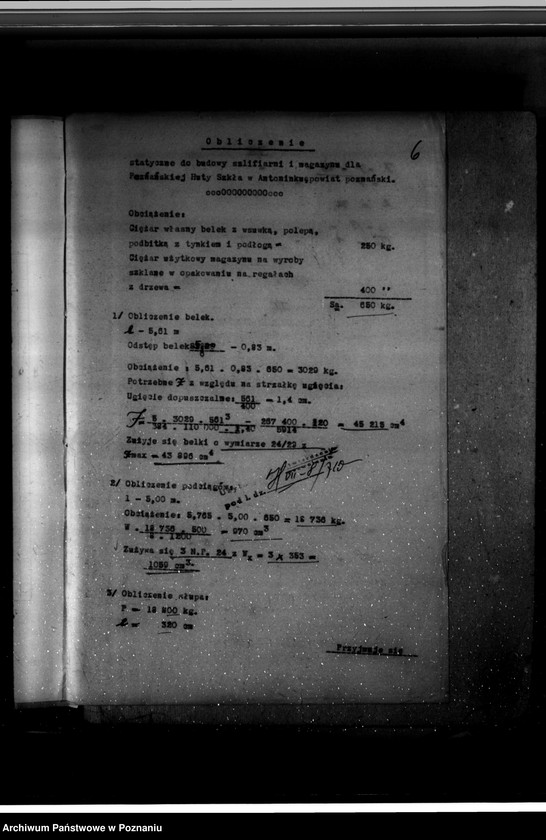 6
Obliczenie
statyczne do budowy szlifierni i magazynu dla
Poznańskiej Huty Szkła w Antoninku, powiat poznański.
oooOOOOOOOOOooo
Obciążenie:
Ciężar własny belek z wsuwką, polepą,
podbitką z tynkiem i podłogą = 250 kg.
Ciężar użytkowy magazynu na wyroby
szklane w opakowaniu na regałach
z drzewa = 400 "
Sa. 650 kg.
1/ Obliczenie belek.
l = 5,61 m
Odstęp belek = 0,83 m.
6
Obciążenie : 5,61 . 0,83 . 650 = 3029 kg.
Potrzebne J z względu na strzałkę ugięcia:
Ugięcie dopuszczalne: 561 = 1,4 cm.
400
J = 5 . 3029 . 561³ = 267 400 . 520 = 45 215 cm⁴
384 . 110 000 . 1,40 5914
Zużyje się belki o wymiarze 24/29 z
Jmax = 43 896 cm⁴
2/ Obliczenie podciągów.
l = 5,00 m.
Obciążenie: 5,765 . 5,00 . 650 = 18 736 kg.
W = 18 736 . 500 = 970 cm³
8 . 1200
Zużywa się 3 N.P. 24 z Wx = 3 x 353 =
1059 cm³.
3/ Obliczenie słupa:
P = 18 800 kg.
l = 320 cm
Przyjmuje się
Archiwum Państwowe w Poznaniu